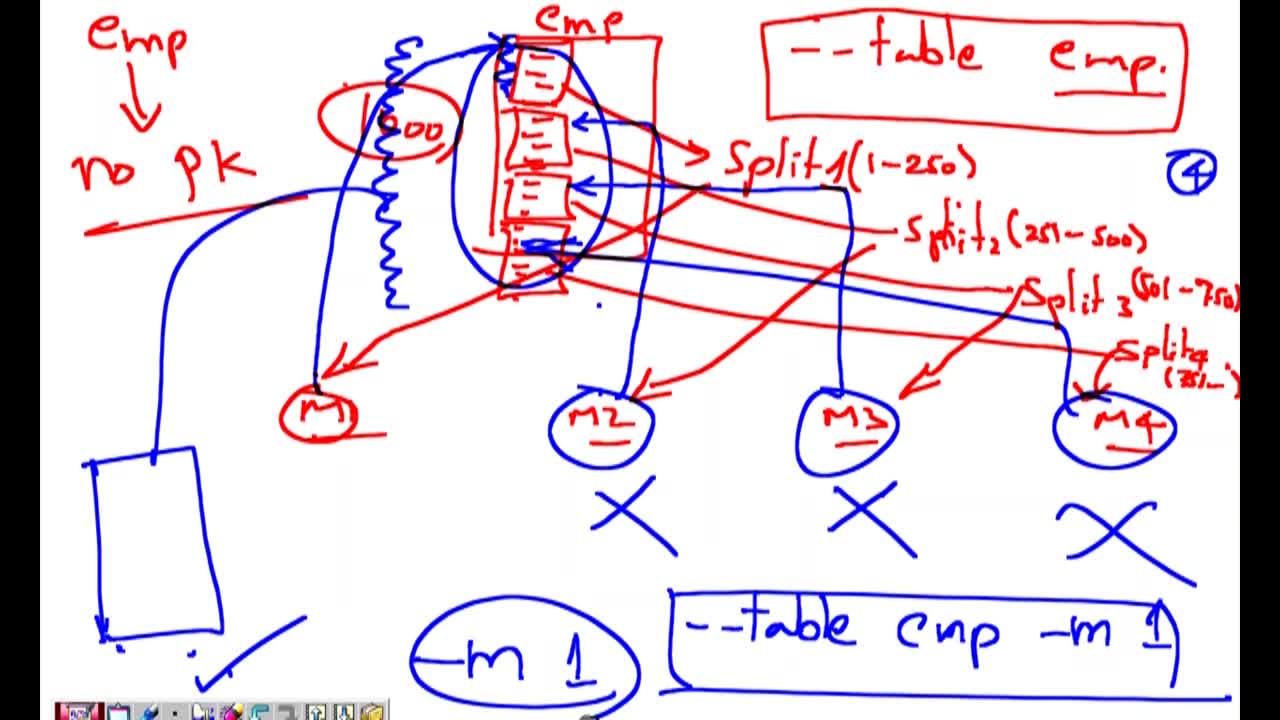 emp
no pk
1000
emp
--table emp.
Split1(1-250)
4
Split2(251-500)
Split3(501-750)
Split4
(751-
M1
M2
M3
M4
-m 1
--table emp -m 1